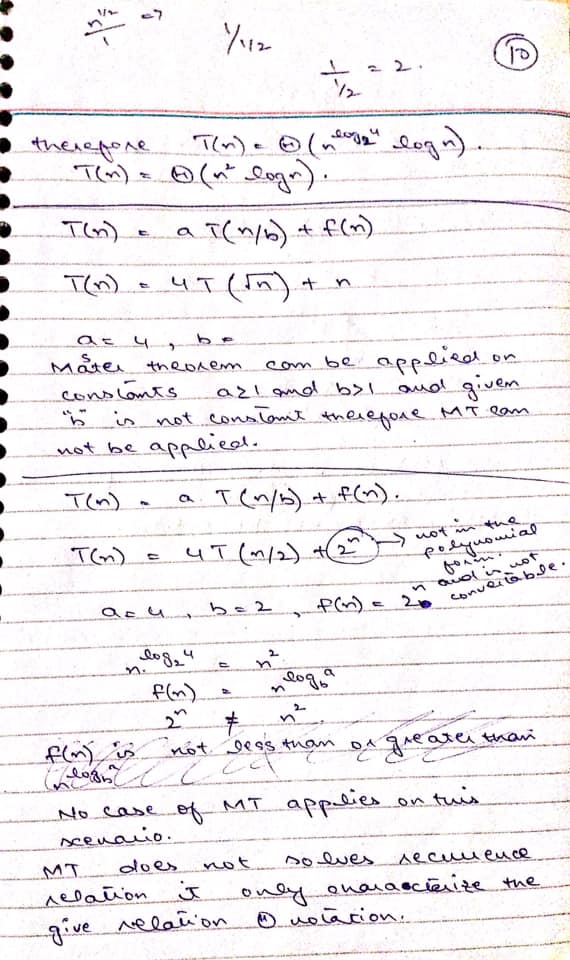 n^1/2 / 1 =>
1/1/2
1 / 1/2 = 2.
10
therefore T(n) = Θ(n^log₂4 log n).
T(n) = Θ(n² log n).
T(n) = a T(n/b) + f(n)
T(n) = 4T(√n) + n
a = 4, b =
Master theorem can be applied on
constants a≥1 and b>1 and given
"b" is not constant therefore MT can
not be applied.
T(n) = a T(n/b) + f(n).
T(n) = 4T(n/2) + 2ⁿ → not in the
polynomial
form.
and is not
convertable.
a=4, b=2, f(n) = 2ⁿ
n^log₂4 = n²
f(n) = n^log_b a
2ⁿ ≠ n²
f(n) is not less than or greater than
n^log_b a
No case of MT applies on this
scenario.
MT does not solves recurrence
relation it only characterize the
give relation Θ notation.